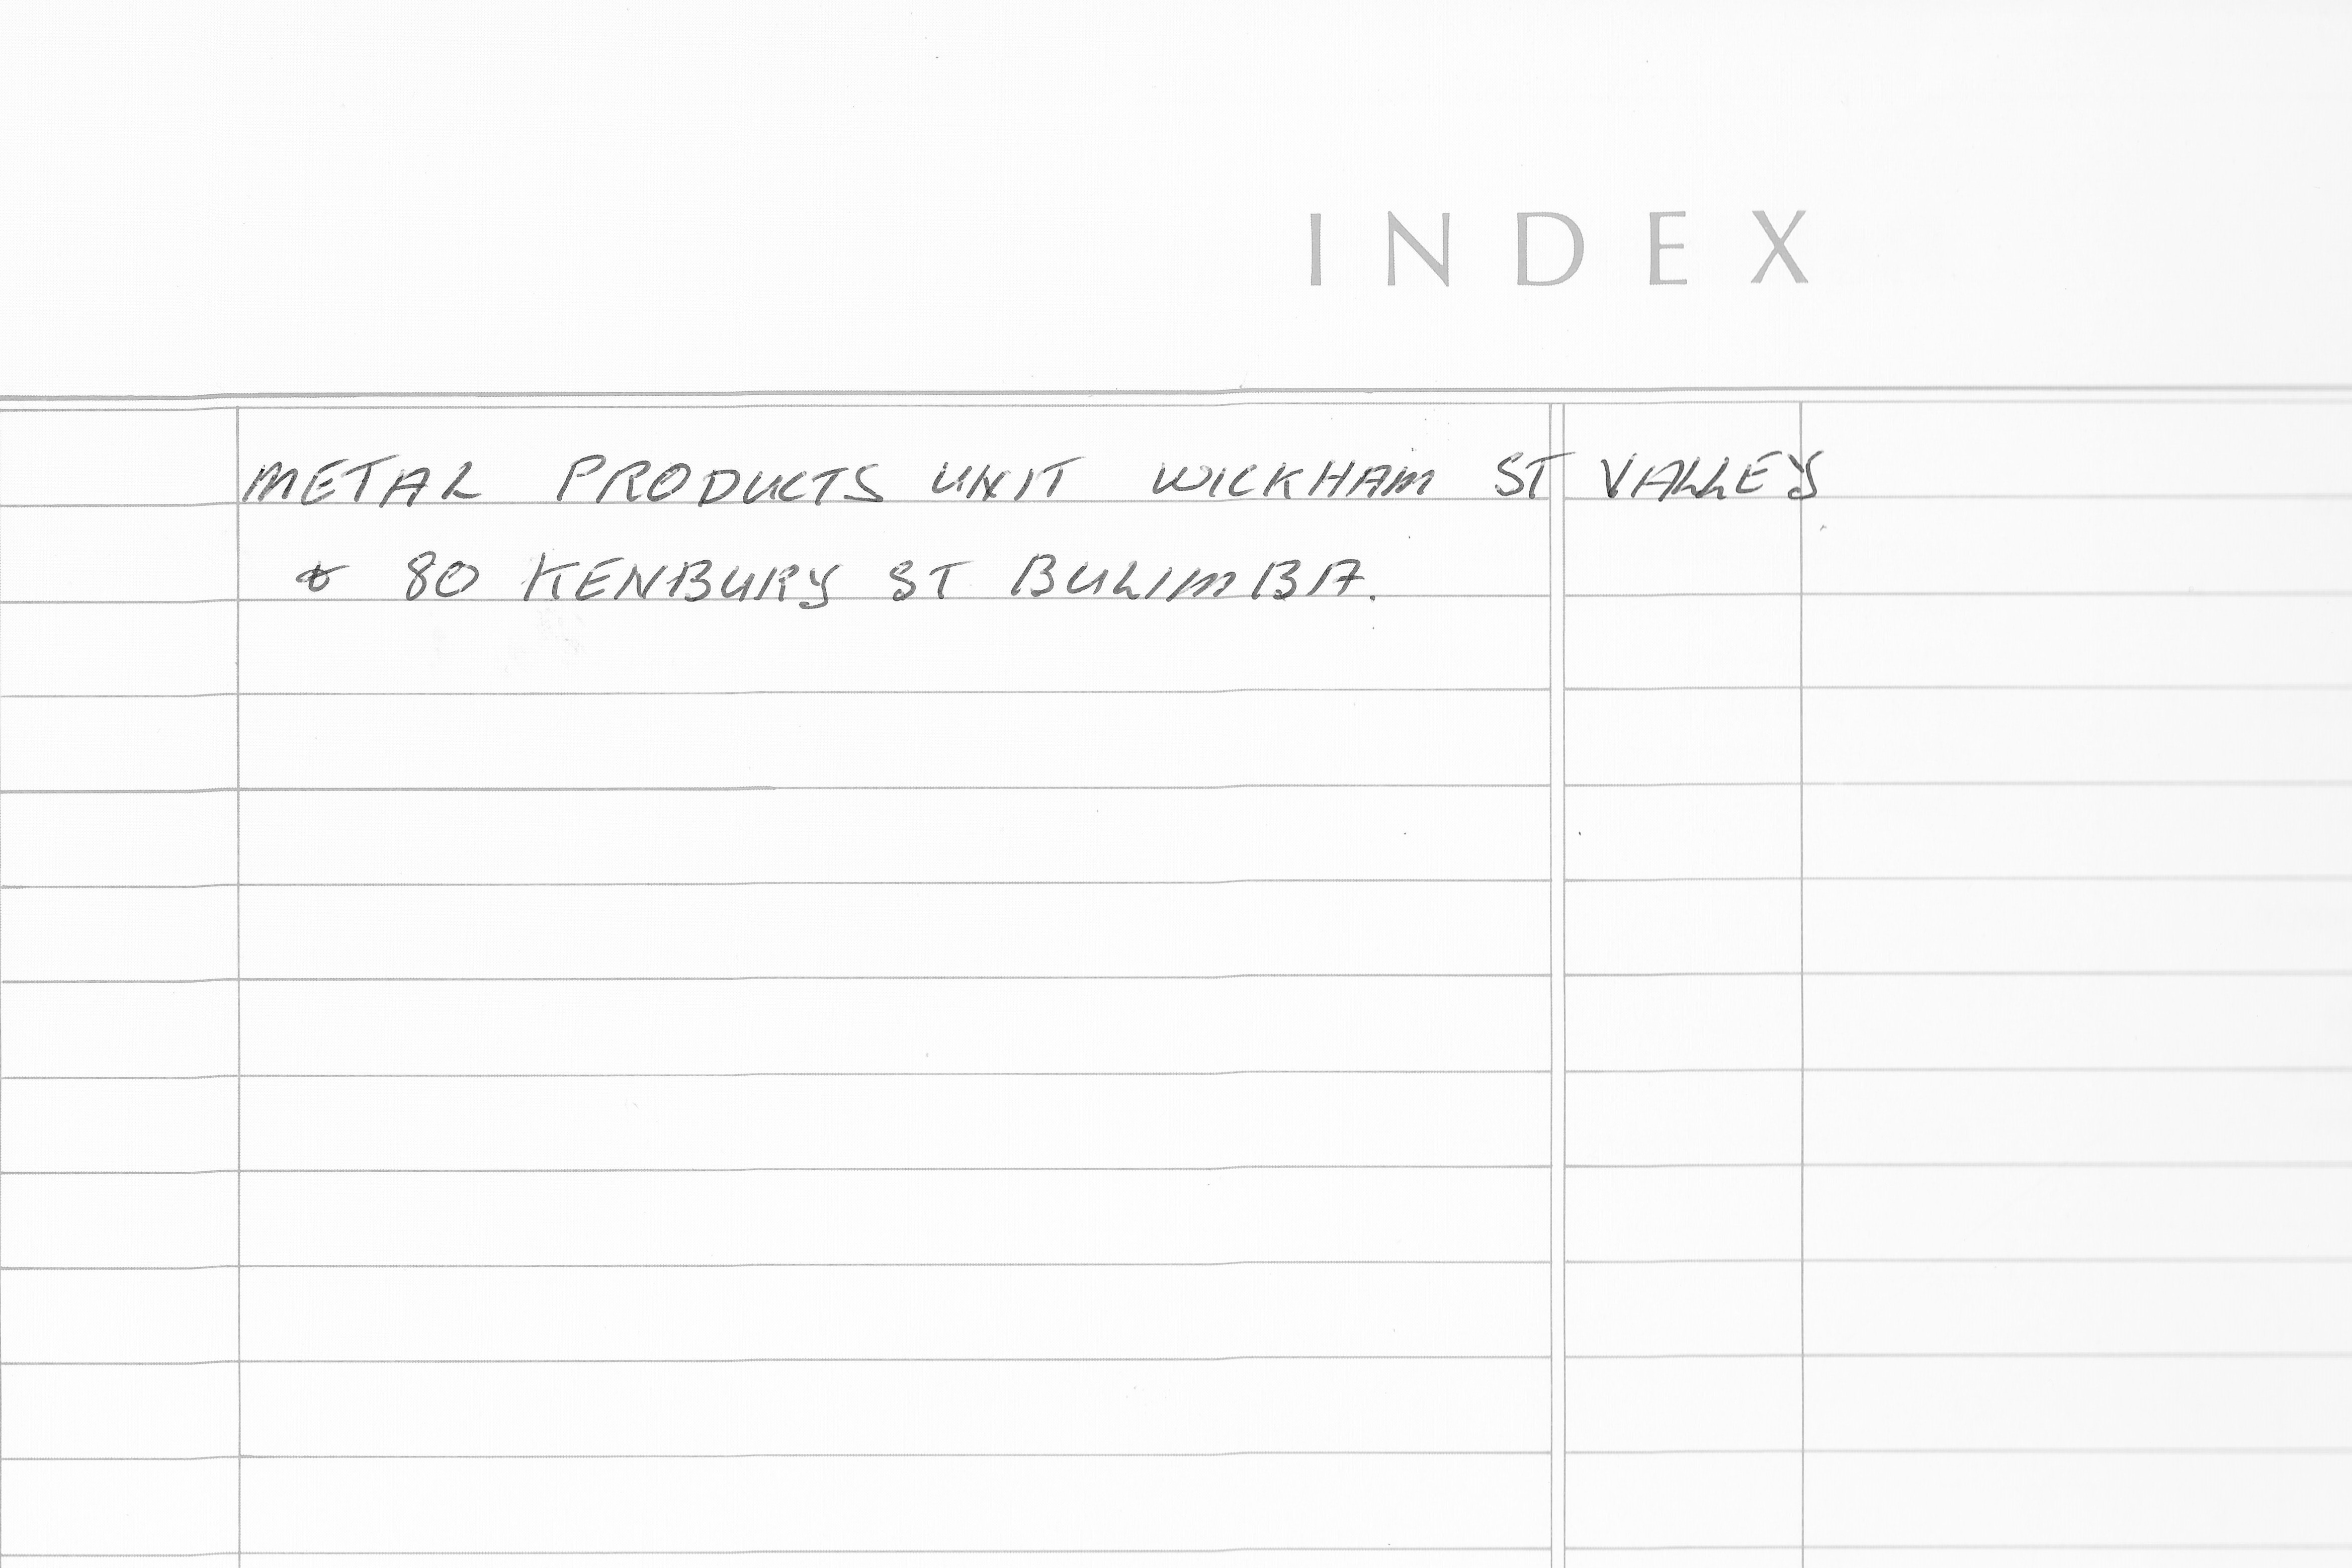 INDEX
METAL PRODUCTS UNIT WICKHAM ST VALLEY
& 80 KENBURY ST BULIMBA.